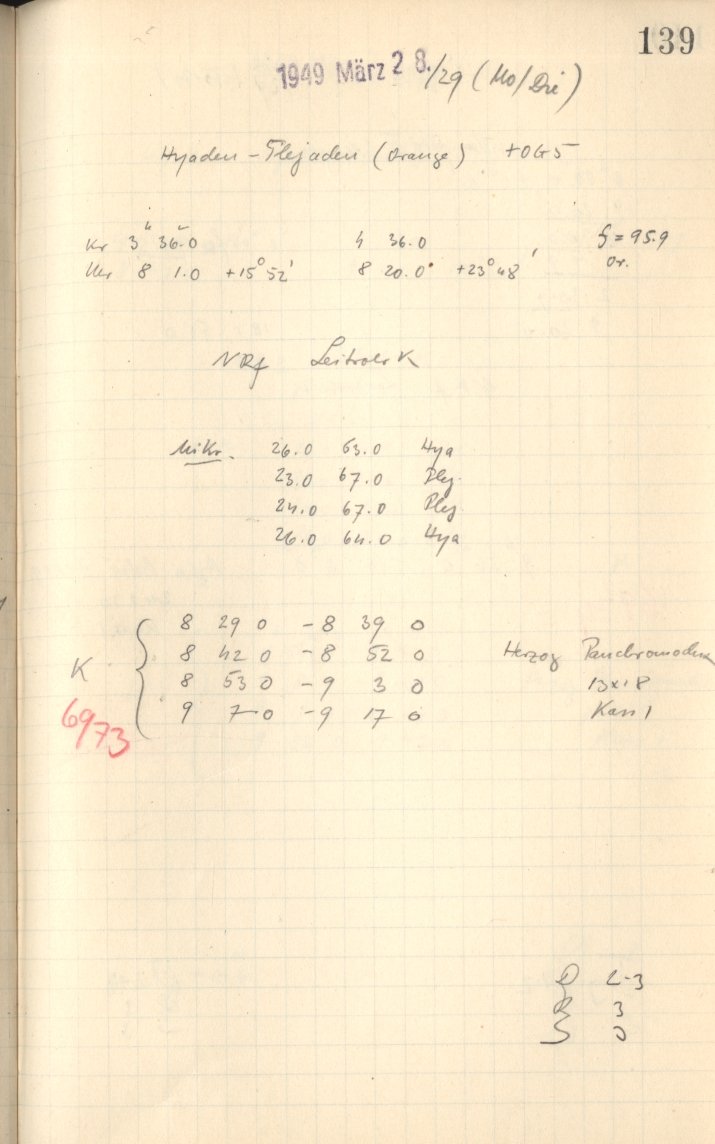 139
1949 März 28./29 (Mo/Die)
Hyaden - Plejaden (orange) +OG5
Kr 3h 36.0 4 36.0 f = 95.9
Uhr 8 1.0 +15° 52' 8 20.0 +23° 48' Or.
NRf Leitrohr K
Mikr. 26.0 63.0 Hya
23.0 67.0 Plej.
24.0 67.0 Plej.
26.0 64.0 Hya
8 29 0 - 8 39 0
8 42 0 - 8 52 0 Herzog
K 8 53 0 - 9 3 0 13x18
9 7 0 - 9 17 0 Kass 1
6973
D 2-3
R 3
S 0